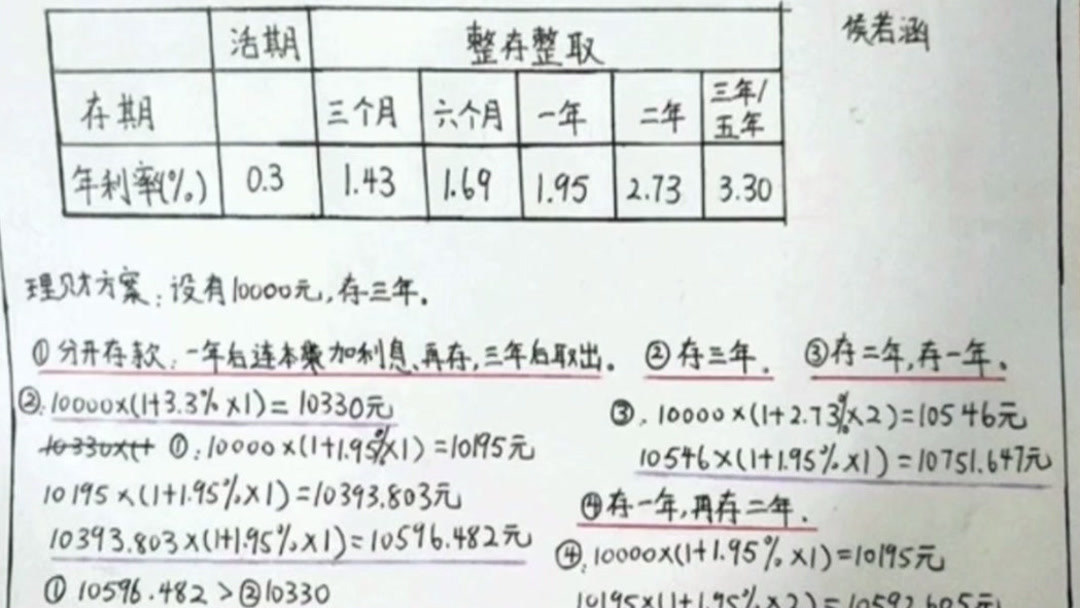 活期 整存整取 侯若涵
存期 三个月 六个月 一年 二年 三年/五年
年利率(%) 0.3 1.43 1.69 1.95 2.73 3.30
理财方案:设有10000元,存三年。
①分开存款:一年后连本 加利息、再存,三年后取出。 ②存三年. ③存二年,存一年.
②:10000×(1+3.3%×1)=10330元
10330×(1+ ①:10000×(1+1.95%×1)=10195元
10195×(1+1.95%×1)=10393.803元
10393.803×(1+1.95%×1)=10596.482元
①10596.482>②10330
③.10000×(1+2.73%×2)=10546元
10546×(1+1.95%×1)=10751.647元
④存一年,再存二年.
④:10000×(1+1.95%×1)=10195元
10195×(1+1.95%×2)=10592.605元